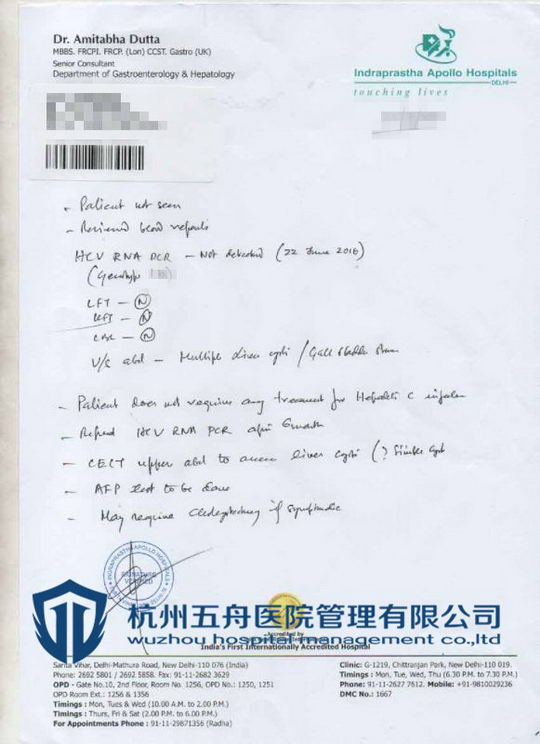 Dr. Amitabha Dutta
MBBS. FRCPI. FRCP. (Lon) CCST. Gastro (UK)
Senior Consultant
Department of Gastroenterology & Hepatology
Indraprastha Apollo Hospitals
DELHI
touching lives
- Patient not seen
- Reviewed blood reports
HCV RNA PCR - Not detected (22 June 2016)
(Genotype
LFT - N
KFT - N
CBC - N
U/S abd - Multiple liver cysts / Gall bladder
- Patient does not require any treatment for Hepatitis C infection
- Repeat HCV RNA PCR after 6 month
- CECT upper abd to assess liver cysts (? Simple Cyst
- AFP test to be done
- May require if symptomatic
INDRAPRASTHA APOLLO HOSPITALS
SIGNATURE
VERIFIED
杭州五舟医院管理有限公司
wuzhou hospital management co.,ltd
Accredited by
India's First Internationally Accredited Hospital
Sarita Vihar, Delhi-Mathura Road, New Delhi-110 076 (India)
Phone: 2692 5801 / 2692 5858. Fax: 91-11-2682 3629
OPD - Gate No.10, 2nd Floor, Room No. 1256, OPD No.: 1250, 1251
OPD Room Ext.: 1256 & 1356
Timings : Mon, Tues & Wed (10.00 A.M. to 2.00 P.M.)
Timings : Thurs, Fri & Sat (2.00 P.M. to 6.00 P.M.)
For Appointments Phone : 91-11-29871356 (Radha)
Clinic: G-1219, Chittranjan Park, New Delhi-110 019.
Timings : Mon, Tue, Wed, Thu (6.30 P.M. to 7.30 P.M.)
Phone: 91-11-2627 7612. Mobile: +91-9810029236
DMC No.: 1667